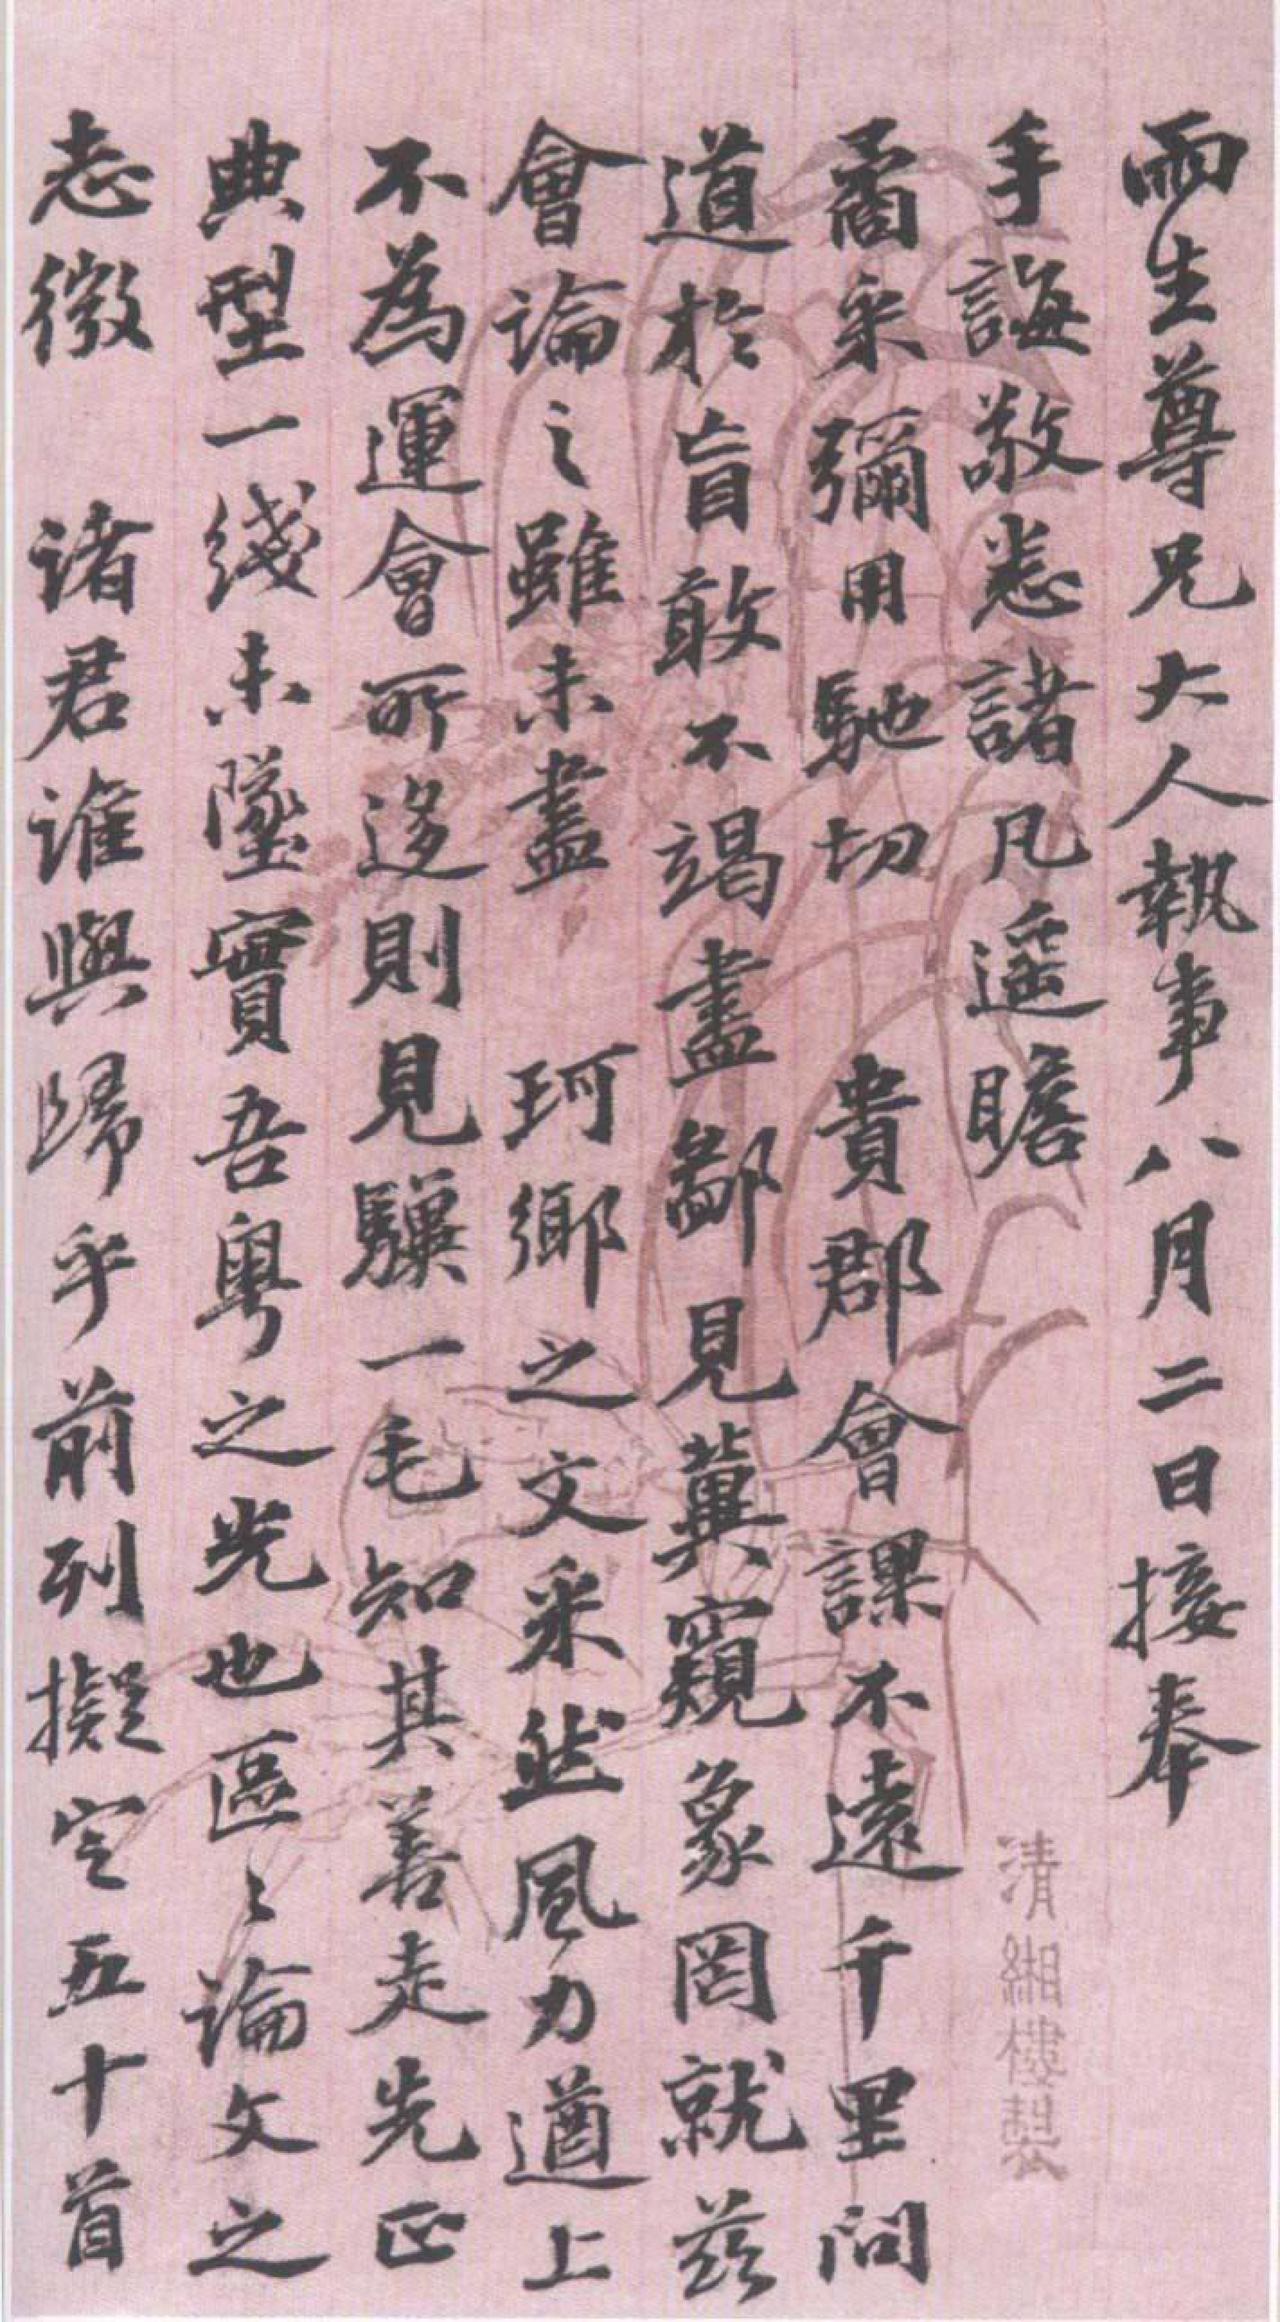 雨生尊兄大人執事八月二日接奉
手誨敬悉諸凡遥瞻
矞采彌用馳切　貴郡會課不遠千里問
道於盲敢不竭盡鄙見冀窺象罔就兹
會論之雖未盡　珂鄉之文采然風力遒上
不為運會所迻則見驥一毛知其善走先正
典型一綫未墜實吾粵之光也區〻論文之
志微　诸君誰與歸乎前列擬定五十首
清緗樓製